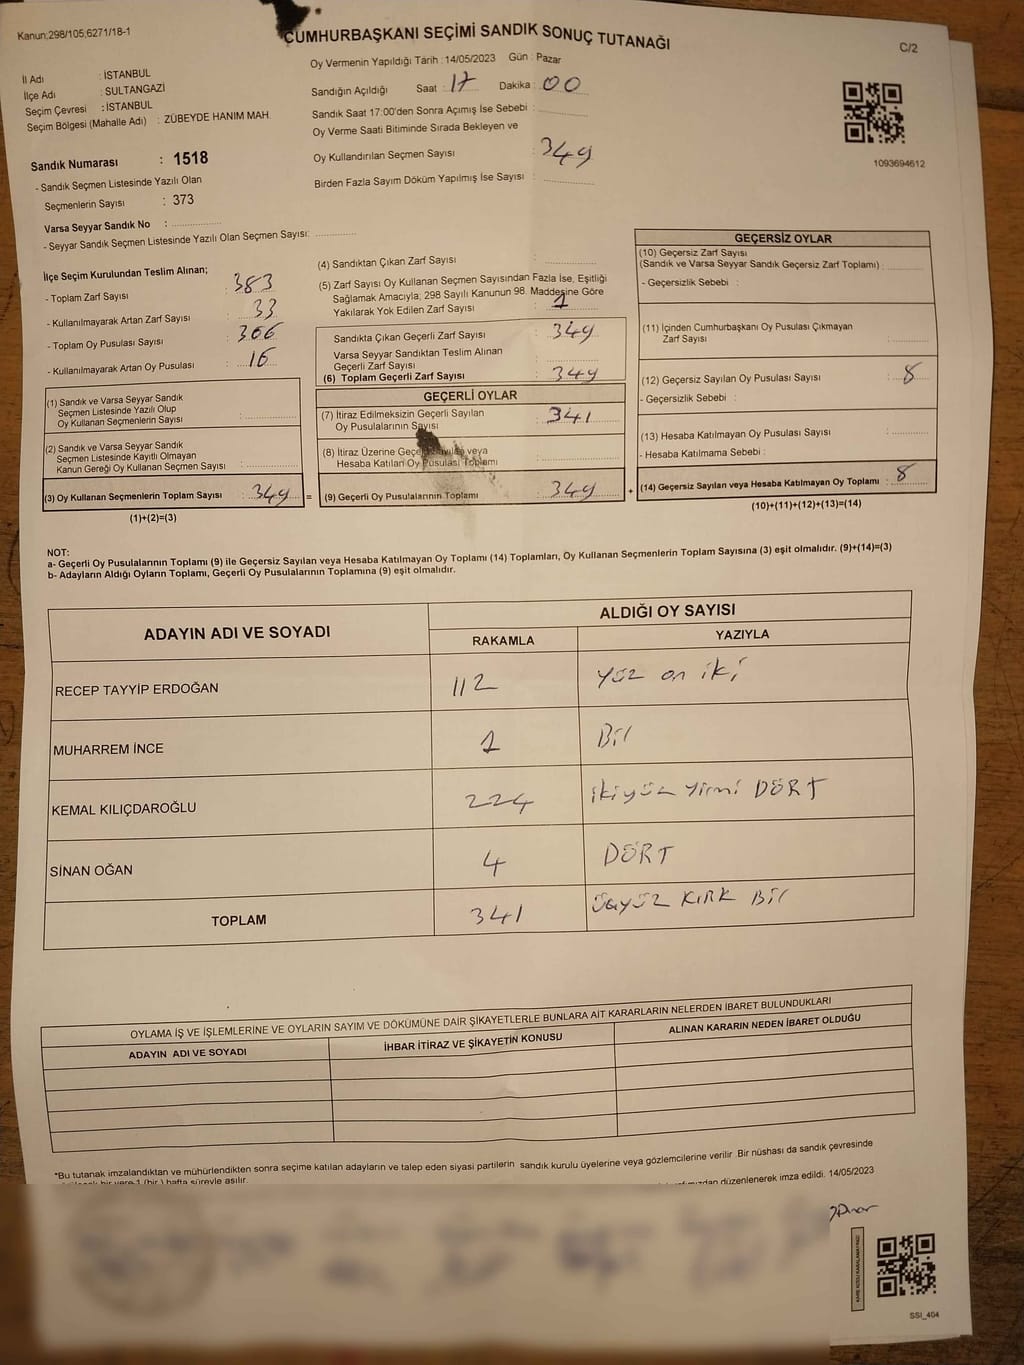 Kanun;298/105;6271/18-1
CUMHURBAŞKANI SEÇİMİ SANDIK SONUÇ TUTANAĞI
C/2
İl Adı : İSTANBUL
İlçe Adı : SULTANGAZİ
Seçim Çevresi : İSTANBUL
Seçim Bölgesi (Mahalle Adı) : ZÜBEYDE HANIM MAH.
Sandık Numarası : 1518
- Sandık Seçmen Listesinde Yazılı Olan
Seçmenlerin Sayısı : 373
Varsa Seyyar Sandık No :
- Seyyar Sandık Seçmen Listesinde Yazılı Olan Seçmen Sayısı:
Oy Vermenin Yapıldığı Tarih : 14/05/2023 Gün : Pazar
Sandığın Açıldığı Saat : 17 Dakika : 00
Sandık Saat 17:00'den Sonra Açımış İse Sebebi :
Oy Verme Saati Bitiminde Sırada Bekleyen ve
Oy Kullandırılan Seçmen Sayısı : 349
Birden Fazla Sayım Döküm Yapılmış İse Sayısı :
1093694612
İlçe Seçim Kurulundan Teslim Alınan;
- Toplam Zarf Sayısı : 383
- Kullanılmayarak Artan Zarf Sayısı : 33
- Toplam Oy Pusulası Sayısı : 366
- Kullanılmayarak Artan Oy Pusulası : 16
(1) Sandık ve Varsa Seyyar Sandık
Seçmen Listesinde Yazılı Olup
Oy Kullanan Seçmenlerin Sayısı :
(2) Sandık ve Varsa Seyyar Sandık
Seçmen Listesinde Kayıtlı Olmayan
Kanun Gereği Oy Kullanan Seçmen Sayısı :
(3) Oy Kullanan Seçmenlerin Toplam Sayısı : 349 =
(1)+(2)=(3)
(4) Sandıktan Çıkan Zarf Sayısı :
(5) Zarf Sayısı Oy Kullanan Seçmen Sayısından Fazla İse, Eşitliği
Sağlamak Amacıyla; 298 Sayılı Kanunun 98. Maddesine Göre
Yakılarak Yok Edilen Zarf Sayısı : 1
Sandıkta Çıkan Geçerli Zarf Sayısı : 349
Varsa Seyyar Sandıktan Teslim Alınan
Geçerli Zarf Sayısı :
(6) Toplam Geçerli Zarf Sayısı : 349
GEÇERLİ OYLAR
(7) İtiraz Edilmeksizin Geçerli Sayılan
Oy Pusulalarının Sayısı : 341
(8) İtiraz Üzerine Geçerli Sayılan veya
Hesaba Katılan Oy Pusulası Toplamı :
(9) Geçerli Oy Pusulalarının Toplamı : 349 +
GEÇERSİZ OYLAR
(10) Geçersiz Zarf Sayısı
(Sandık ve Varsa Seyyar Sandık Geçersiz Zarf Toplamı) :
- Geçersizlik Sebebi :
(11) İçinden Cumhurbaşkanı Oy Pusulası Çıkmayan
Zarf Sayısı :
(12) Geçersiz Sayılan Oy Pusulası Sayısı : 8
- Geçersizlik Sebebi :
(13) Hesaba Katılmayan Oy Pusulası Sayısı :
- Hesaba Katılmama Sebebi :
(14) Geçersiz Sayılan veya Hesaba Katılmayan Oy Toplamı : 8
(10)+(11)+(12)+(13)=(14)
NOT:
a- Geçerli Oy Pusulalarının Toplamı (9) ile Geçersiz Sayılan veya Hesaba Katılmayan Oy Toplamı (14) Toplamları, Oy Kullanan Seçmenlerin Toplam Sayısına (3) eşit olmalıdır. (9)+(14)=(3)
b- Adayların Aldığı Oyların Toplamı, Geçerli Oy Pusulalarının Toplamına (9) eşit olmalıdır.
ADAYIN ADI VE SOYADI
ALDIĞI OY SAYISI
RAKAMLA YAZIYLA
RECEP TAYYİP ERDOĞAN 112 yüz on iki
MUHARREM İNCE 1 Bir
KEMAL KILIÇDAROĞLU 224 ikiyüz yirmi DÖRT
SİNAN OĞAN 4 DÖRT
TOPLAM 341 üçyüz KIRK Bir
OYLAMA İŞ VE İŞLEMLERİNE VE OYLARIN SAYIM VE DÖKÜMÜNE DAİR ŞİKAYETLERLE BUNLARA AİT KARARLARIN NELERDEN İBARET BULUNDUKLARI
ADAYIN ADI VE SOYADI İHBAR İTİRAZ VE ŞİKAYETİN KONUSU ALINAN KARARIN NEDEN İBARET OLDUĞU
*Bu tutanak imzalandıktan ve mühürlendikten sonra seçime katılan adayların ve talep eden siyasi partilerin sandık kurulu üyelerine veya gözlemcilerine verilir .Bir nüshası da sandık çevresinde
bir yere 1 (bir ) hafta süreyle asılır.
düzenlenerek imza edildi. 14/05/2023
SSİ_404